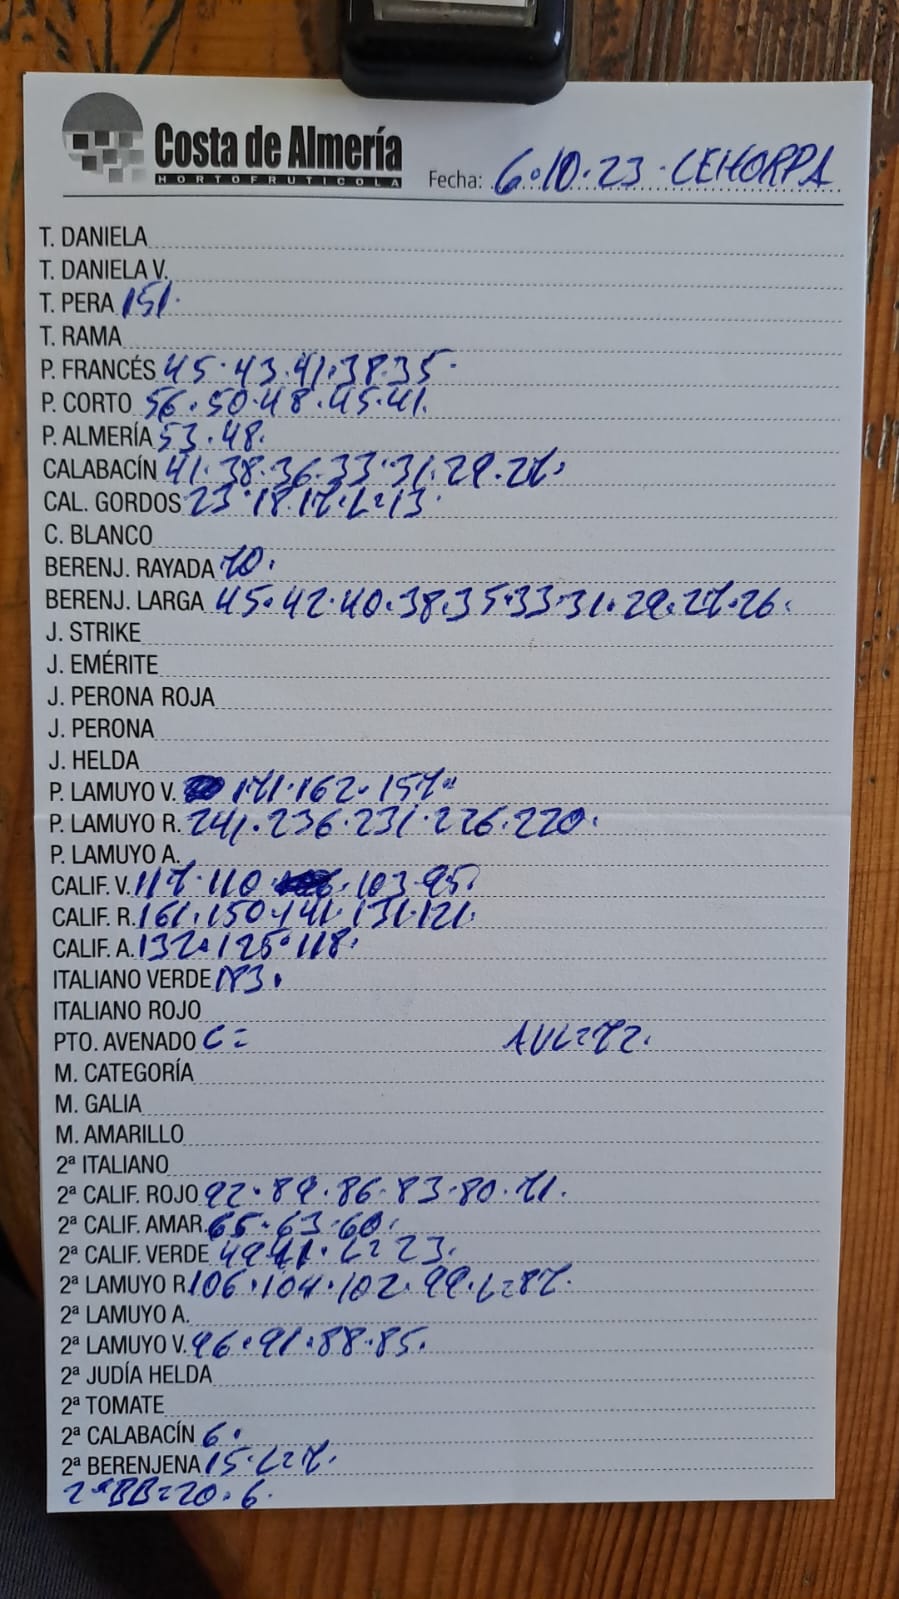 Costa de Almería
HORTOFRUTICOLA
Fecha: 6·10·23·CEHORPA
T. DANIELA
T. DANIELA V.
T. PERA 151·
T. RAMA
P. FRANCÉS 45·43·41·38·35·
P. CORTO 56·50·48·45·41·
P. ALMERÍA 53·48·
CALABACÍN 41·38·36·33·31·29·27·
CAL. GORDOS 23·18·17·L=13·
C. BLANCO
BERENJ. RAYADA 70·
BERENJ. LARGA 45·42·40·38·35·33·31·29·27·26·
J. STRIKE
J. EMÉRITE
J. PERONA ROJA
J. PERONA
J. HELDA
P. LAMUYO V. 171·162·157·
P. LAMUYO R. 241·236·231·226·220·
P. LAMUYO A.
CALIF. V. 117·110·103·95·
CALIF. R. 161·150·141·131·121·
CALIF. A. 132·125·118·
ITALIANO VERDE
ITALIANO ROJO
PTO. AVENADO C= AVL=72·
M. CATEGORÍA
M. GALIA
M. AMARILLO
2ª ITALIANO
2ª CALIF. ROJO 92·89·86·83·80·71·
2ª CALIF. AMAR. 65·63·60·
2ª CALIF. VERDE 49·41·L=23·
2ª LAMUYO R. 106·104·102·99·L=87·
2ª LAMUYO A.
2ª LAMUYO V. 96·91·88·85·
2ª JUDÍA HELDA
2ª TOMATE
2ª CALABACÍN 6·
2ª BERENJENA 15·L=7·
2ªBB=20·6·